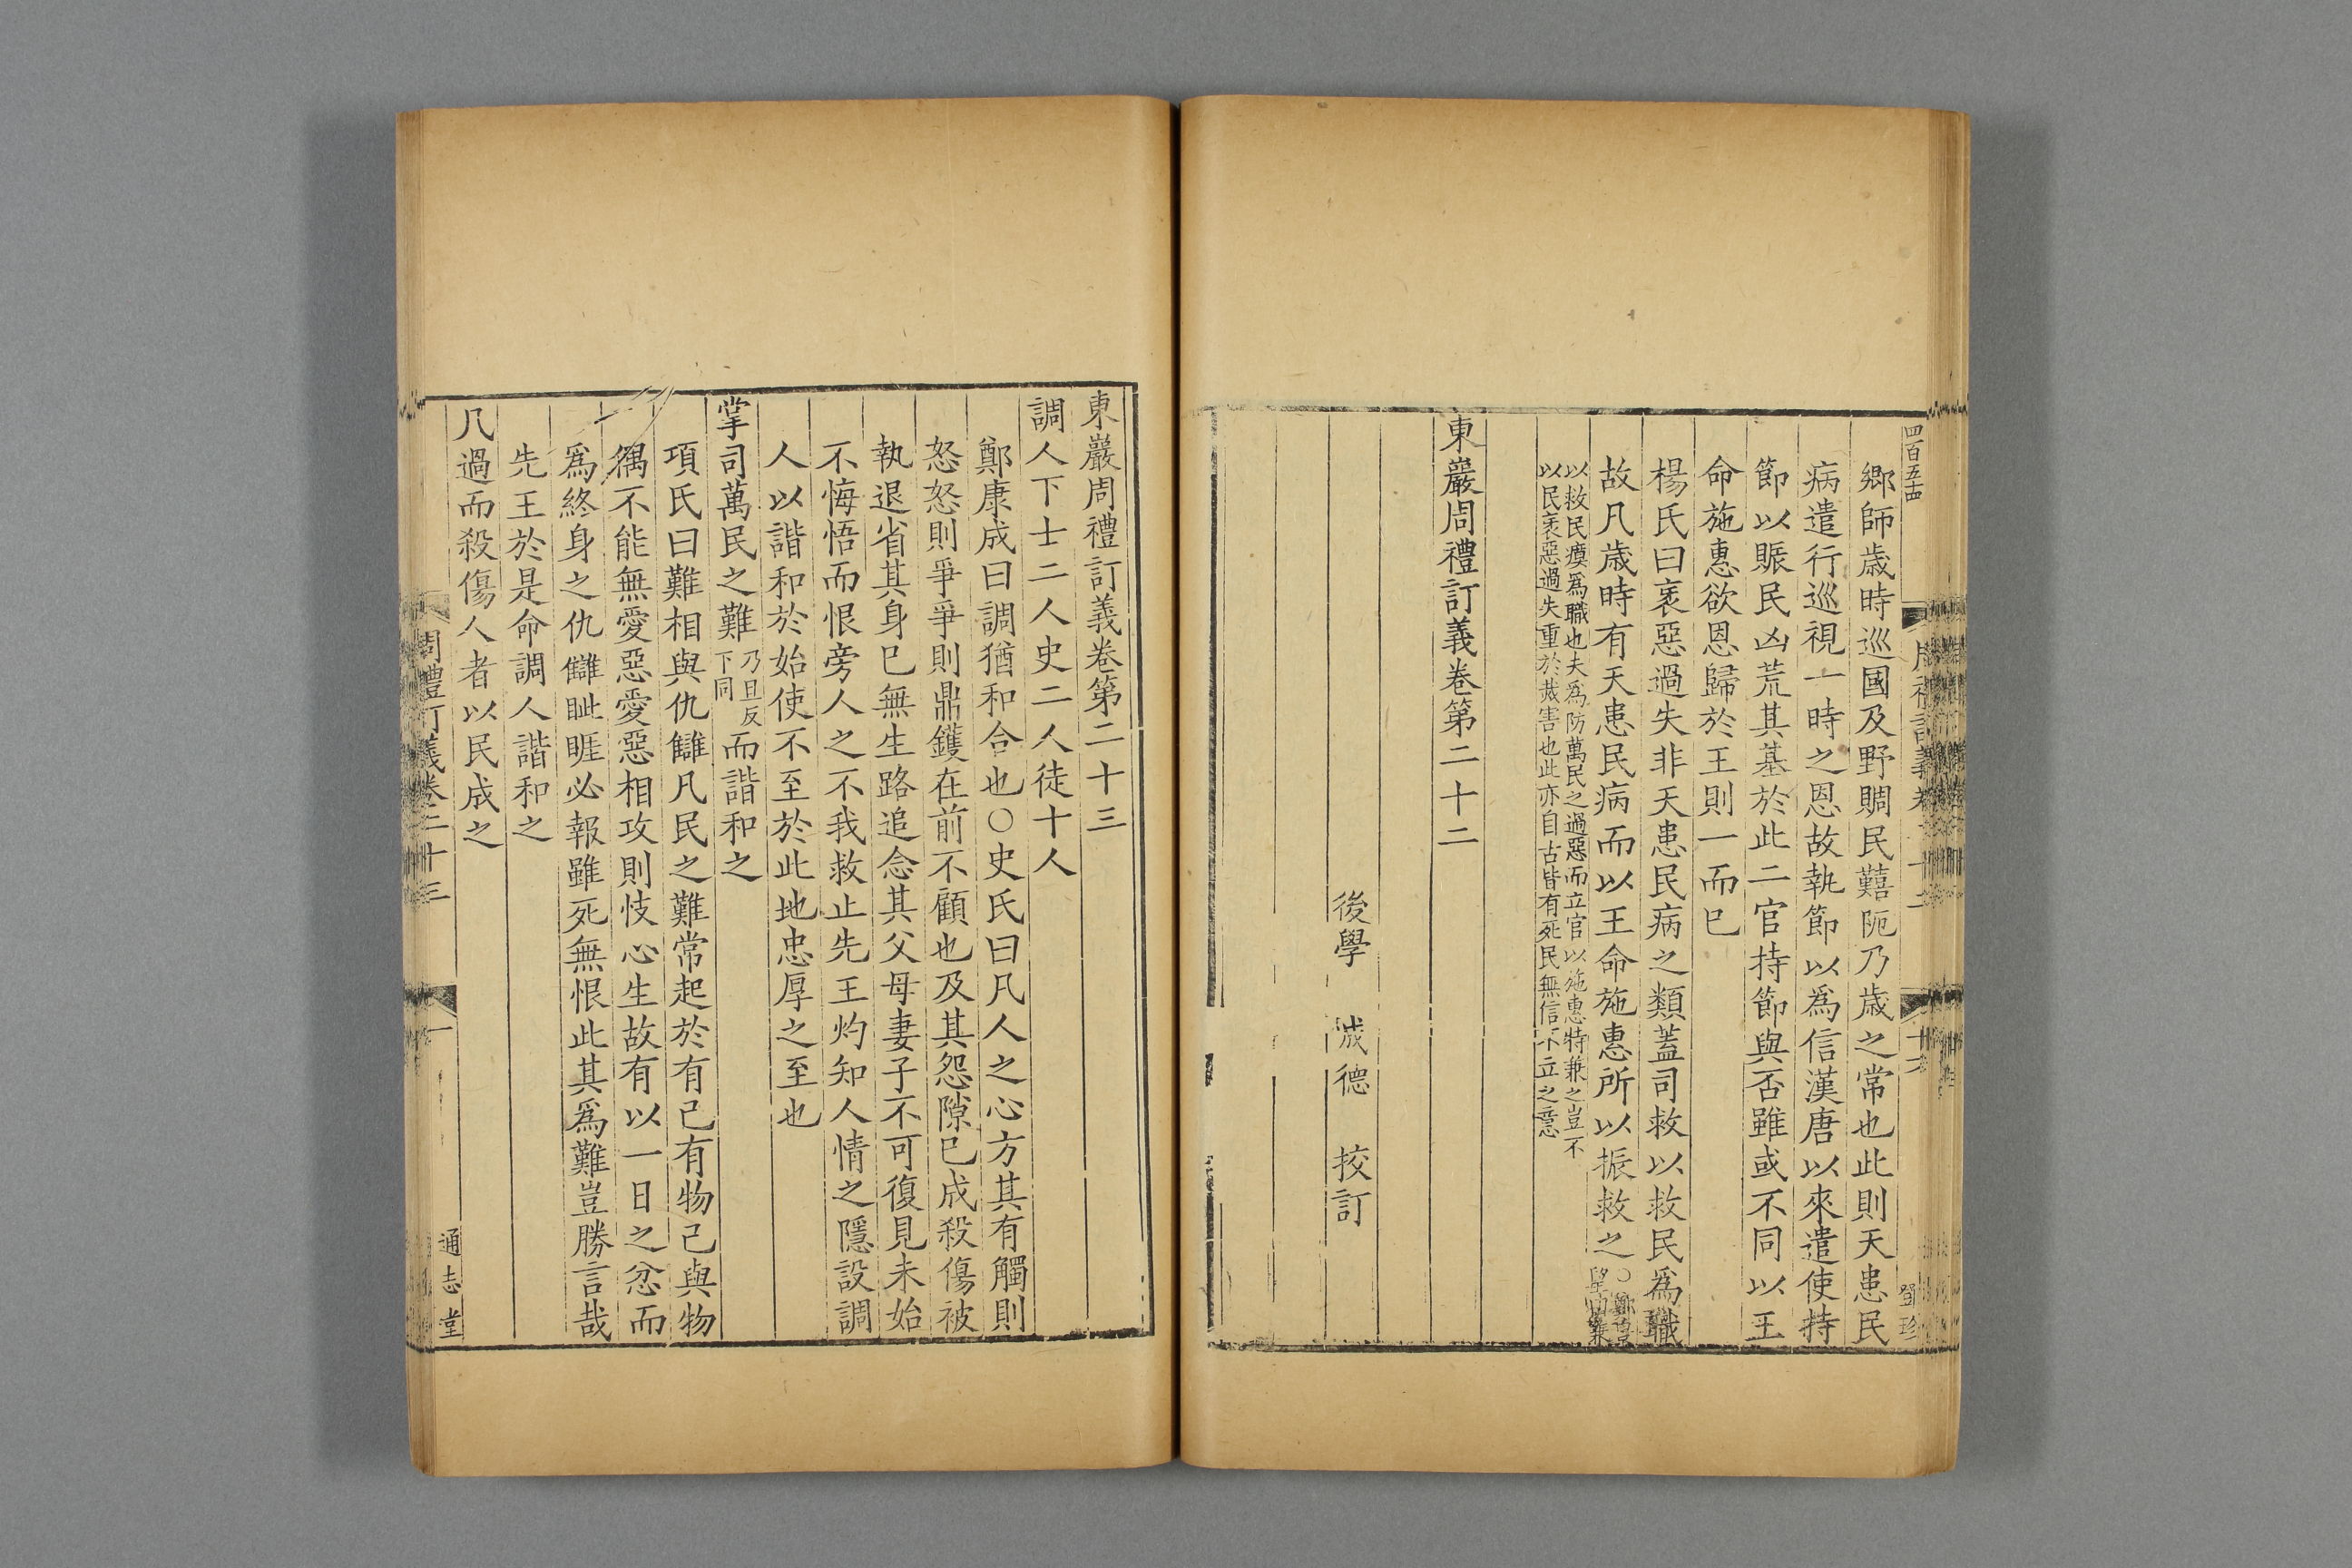 四百五十四
鄉師歲時巡國及野賙民囏阨乃歲之常也此則天患民
病遣行巡視一時之恩故執節以爲信漢唐以來遣使持
節以賑民凶荒其基於此二官持節與否雖或不同以王
命施惠欲恩歸於王則一而已
楊氏曰衺惡過失非天患民病之類蓋司救以救民爲職
故凡歲時有天患民病而以王命施惠所以振救之○
以救民瘼爲職也夫爲防萬民之過惡而立官以施惠特兼之豈不
以民衺惡過失重於烖害也此亦自古皆有死民無信不立之意
東巖周禮訂義卷第二十二
後學 成德 挍訂
鄧珍
東巖周禮訂義卷第二十三
調人下士二人史二人徒十人
鄭康成曰調猶和合也○史氏曰凡人之心方其有觸則
怒怒則爭爭則鼎鑊在前不顧也及其怨隙已成殺傷被
執退省其身已無生路追念其父母妻子不可復見未始
不悔悟而恨旁人之不我救止先王灼知人情之隱設調
人以諧和於始使不至於此地忠厚之至也
掌司萬民之難乃旦反下同而諧和之
項氏曰難相與仇讎凡民之難常起於有己有物己與物
偶不能無愛惡愛惡相攻則忮心生故有以一日之忿而
爲終身之仇讎眦睚必報雖死無恨此其爲難豈勝言哉
先王於是命調人諧和之
凡過而殺傷人者以民成之
周禮訂義卷二十三
一
通志堂